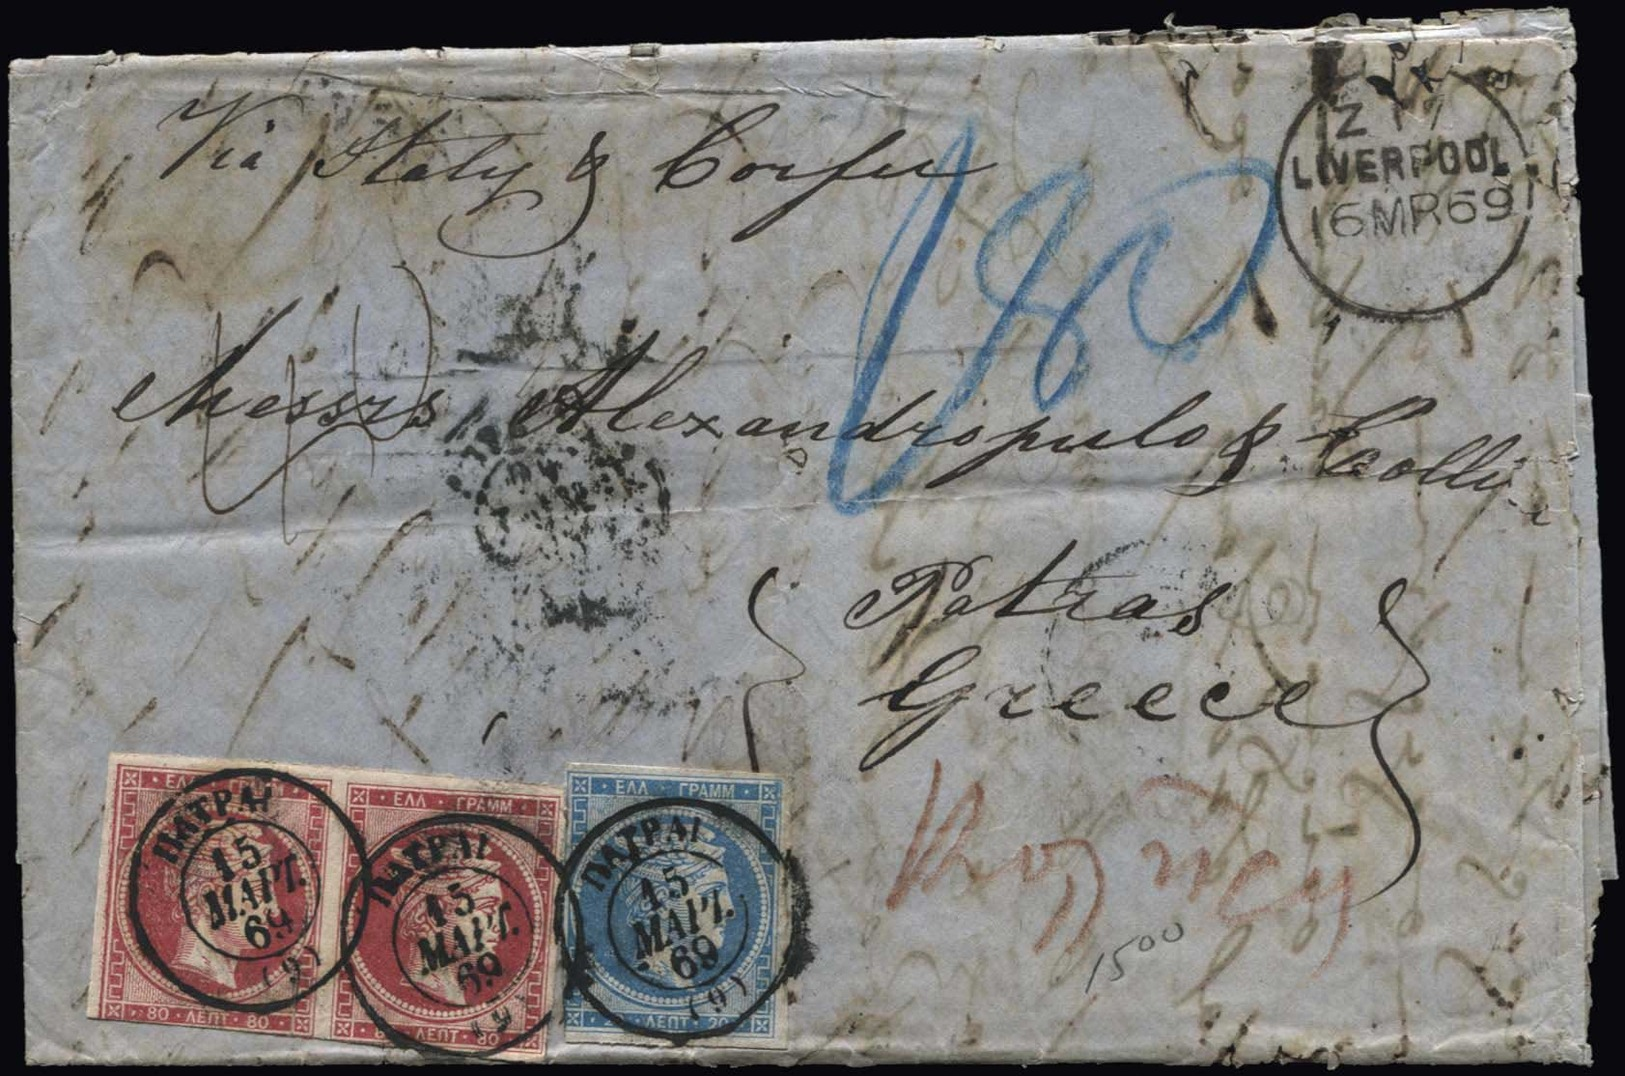 Via Italy & Corfu
Z 17
LIVERPOOL
16MR69
180
Messrs Alexandropulo & Colli
Patras
Greece
1500
ΕΛΛ ΓΡΑΜΜ
ΠΑΤΡΑΙ
15
ΜΑΡΤ.
69
(9)
80 ΛΕΠΤ 80
ΕΛΛ · ΓΡΑΜΜ
ΠΑΤΡΑΙ
15
ΜΑΡΤ.
69
(9)
80 ΛΕΠΤ 80
ΕΛΛ · ΓΡΑΜΜ
ΠΑΤΡΑΙ
15
ΜΑΡΤ.
69
(9)
20 · ΛΕΠΤ · 20